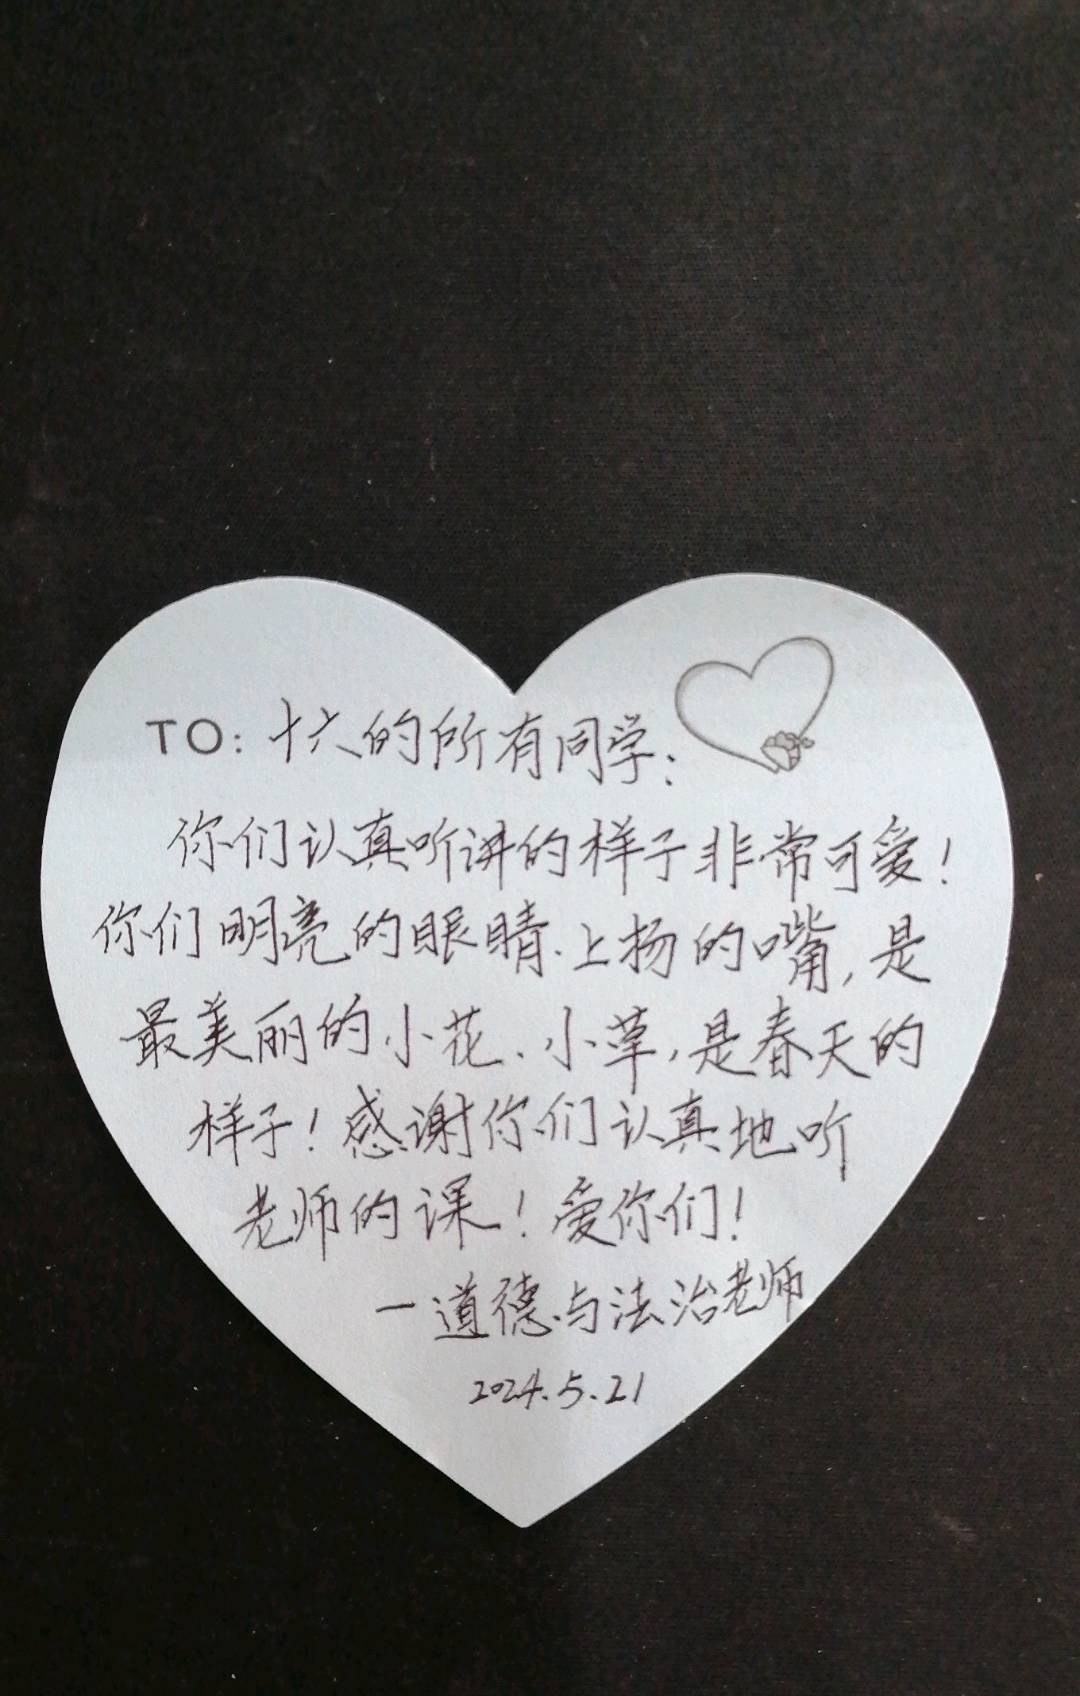 TO: 十六的所有同学:
你们认真听讲的样子非常可爱!
你们明亮的眼睛、上扬的嘴角,是
最美丽的小花、小草,是春天的
样子!感谢你们认真地听
老师的课!爱你们!
—道德与法治老师
2024.5.21